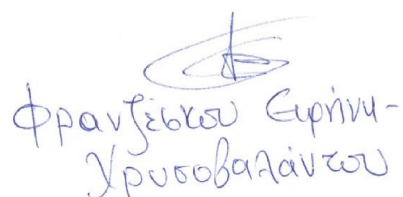 Φραντζέσκου Ειρήνη-
Χρυσοβαλάντου